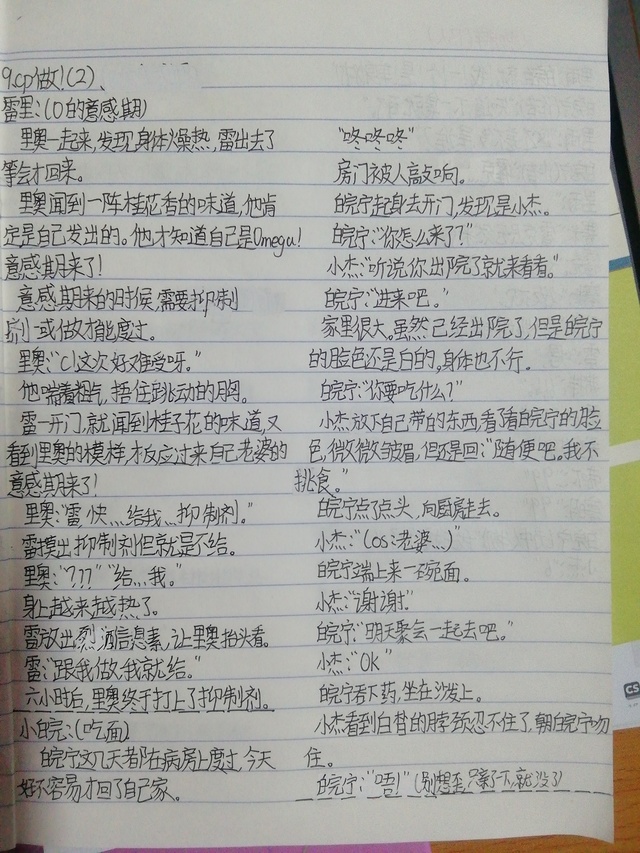 9.cp做!(2)、
雷里:(O的意感期)
里奥一起来,发现身体燥热,雷出去了
等会才回来。
里奥闻到一阵桂花香的味道,他肯
定是自己发出的。他才知道自己是Omega!
意感期来了!
意感期来的时候,需要抑制
剂或做才能度过。
里奥:“C!这次好难受呀。”
他喘着粗气,捂住跳动的胸。
雷一开门,就闻到桂子花的味道,又
看到里奥的模样,才反应过来自己老婆的
意感期来了!
里奥:“雷,快...给我...抑制剂。”
雷摸出抑制剂但就是不给。
里奥:“???”“给...我。”
身上越来越热了。
雷放出烈酒信息素,让里奥抬头看。
雷:“跟我做,我就给。”
六小时后,里奥终于打上了抑制剂。
小皖:(吃面)
皖宁这几天都在病房上度过,今天
好不容易才回了自己家。
“咚咚咚”
房门被人敲响。
皖宁起身去开门,发现是小杰。
皖宁:“你怎么来了?”
小杰:“听说你出院了就来看看。”
皖宁:“进来吧。”
家里很大。虽然已经出院了,但是皖宁
的脸色还是白的。身体也不行。
皖宁:“你要吃什么?”
小杰放下自己带的东西,看了看皖宁的脸
色,微微皱眉,但还是回:“随便吧。我不
挑食。”
皖宁点了点头,向厨房走去。
小杰:“(os:老婆...)”
皖宁端上来一碗面。
小杰:“谢谢”
皖宁:“明天聚会一起去吧。”
小杰:“Ok”
皖宁吞下药,坐在沙发上。
小杰看到白皙的脖颈忍不住了,朝皖宁吻
住。
皖宁:“唔!”(别想歪,只亲了下,就没了)
CS